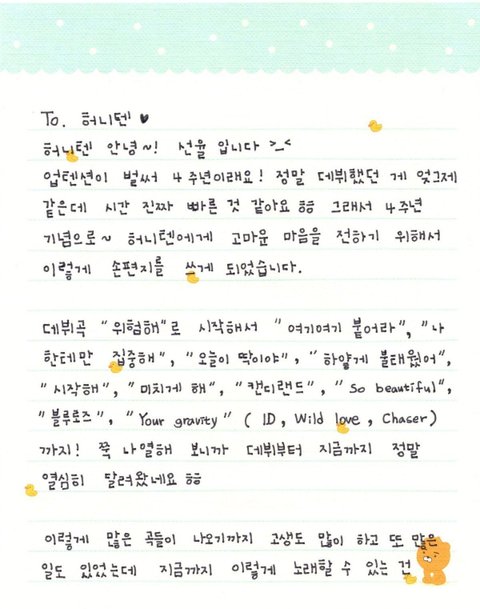 To. 허니텐 ♥
허니텐 안녕~! 선율 입니다 >_<
업텐션이 벌써 4주년이래요! 정말 데뷔했던 게 엊그제
같은데 시간 진짜 빠른 것 같아요 ㅎㅎ 그래서 4주년
기념으로~ 허니텐에게 고마운 마음을 전하기 위해서
이렇게 손편지를 쓰게 되었습니다.
데뷔곡 "위험해"로 시작해서 "여기여기 붙어라", "나
한테만 집중해", "오늘이 딱이야", "하얗게 불태웠어",
"시작해", "미치게 해", "캔디랜드", "So beautiful",
"블루로즈", "Your gravity" ( ID, Wild love, Chaser)
까지! 쭉 나열해 보니까 데뷔부터 지금까지 정말
열심히 달려왔네요 ㅎㅎ
이렇게 많은 곡들이 나오기까지 고생도 많이 하고 또 많은
일도 있었는데 지금까지 이렇게 노래할 수 있는 건